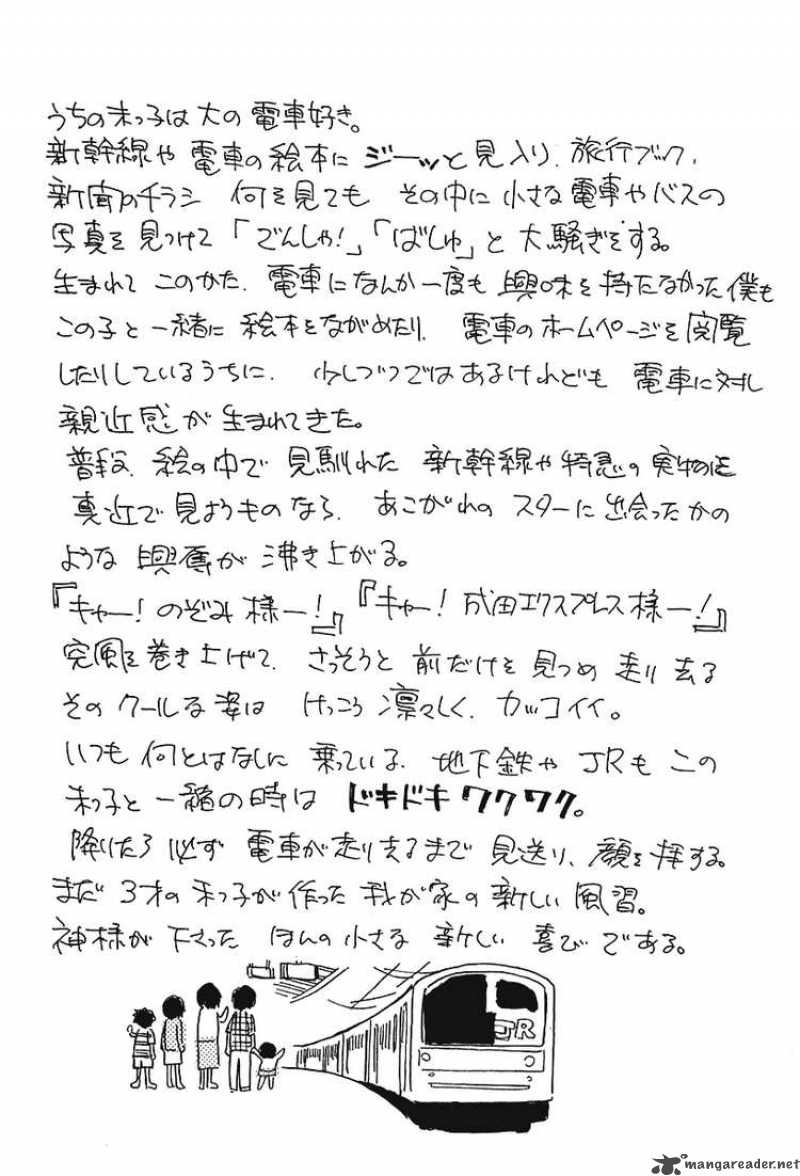 うちの末っ子は大の電車好き。
新幹線や電車の絵本にジーッと見入り、旅行ブック、
新聞のチラシ 何を見ても その中に小さな電車やバスの
写真を見つけて「でんしゃ!」「ばしゅ」と大騒ぎをする。
生まれてこのかた、電車になんか一度も興味を持たなかった僕も
この子と一緒に絵本をながめたり、電車のホームページを閲覧
したりしているうちに、少しづつではあるけれども 電車に対し
親近感が生まれてきた。
普段、絵の中で見馴れた 新幹線や特急の実物を
真近で見ようものなら、あこがれのスターに出会ったかの
ような興奮が沸き上がる。
『キャー!のぞみ様ー!』『キャー!成田エクスプレス様ー!』
突風を巻き上げて、さっそうと前だけを見つめ走り去る
そのクールな姿は けっこう凛々しく、カッコイイ。
いつも何とはなしに乗っている、地下鉄やJRもこの
末っ子と一緒の時はドキドキワクワク。
降りたら必ず電車が走り去るまで見送り、顔を拝する。
まだ3才の末っ子が作った我が家の新しい風習。
神様が下さった ほんの小さな新しい喜びである。
JR
mangareader.net